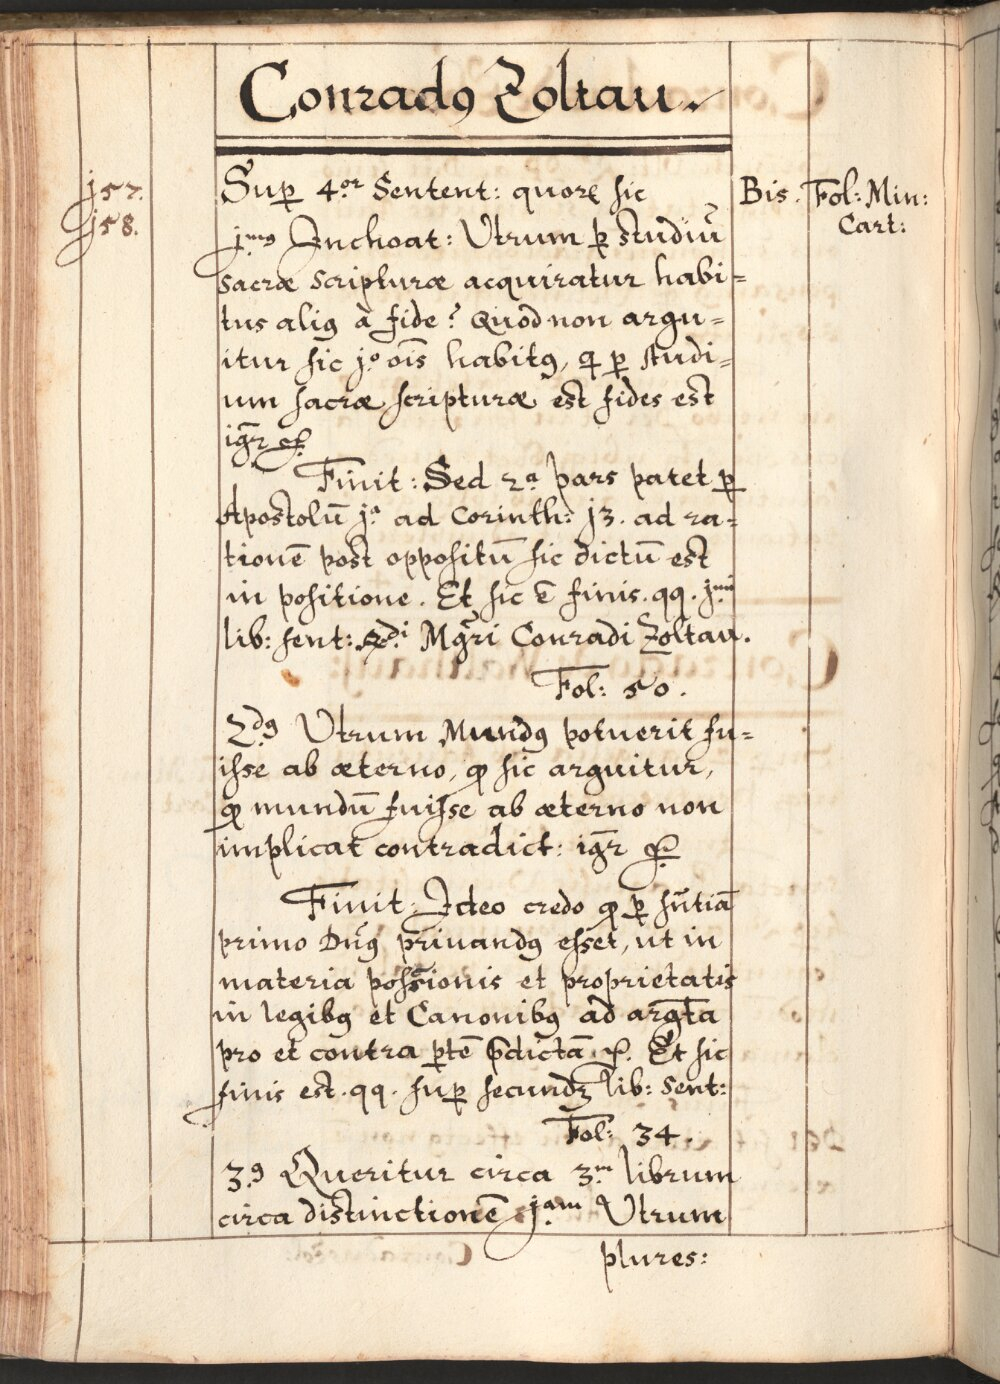 Conradꝯ Zoltau.
j57.
j58.
Suꝑ 4.or Sentent: quorꝝ sic
Bis. Fol: Min:
Cart:
j.mꝯ Inchoat: Utrum ꝑ studiū
sacræ scripturæ acquiratur habi=
tus aliꝯ à fide? Quod non argu=
itur sic j.o oīs habitꝯ, q ꝑ studi=
um sacræ scripturæ est fides est
igr̄ &.
Finit: Sed 2.a pars patet ꝑ
Apostolū j.a ad Corinth: j3. ad ra=
tionē post oppositū sic dictū est
in positione. Et sic ē finis. qq. j.mi
lib: sent: Rdi Mgr̄i Conradi Zoltau.
Fol: 50.
2.dꝯ Utrum Mundꝯ potuerit fu=
isse ab æterno, ꝙ sic arguitur,
ꝙ mundū fuisse ab æterno non
implicat contradict: igr̄ &.
Finit: Ideo credo ꝙ ꝑ sn̄tiā
primo Dn̄ꝯ priuandꝯ esset, ut in
materia possēionis et proprietatis
in legibꝯ et Canonibꝯ ad argt̄a
pro et contra ꝑtē p̄dictā &. Et sic
finis est. qq. suꝑ secundꝫ lib: sent:
Fol: 34.
3.ꝯ Queritur circa 3.m librum
circa distinctionē j.am Utrum
plures: